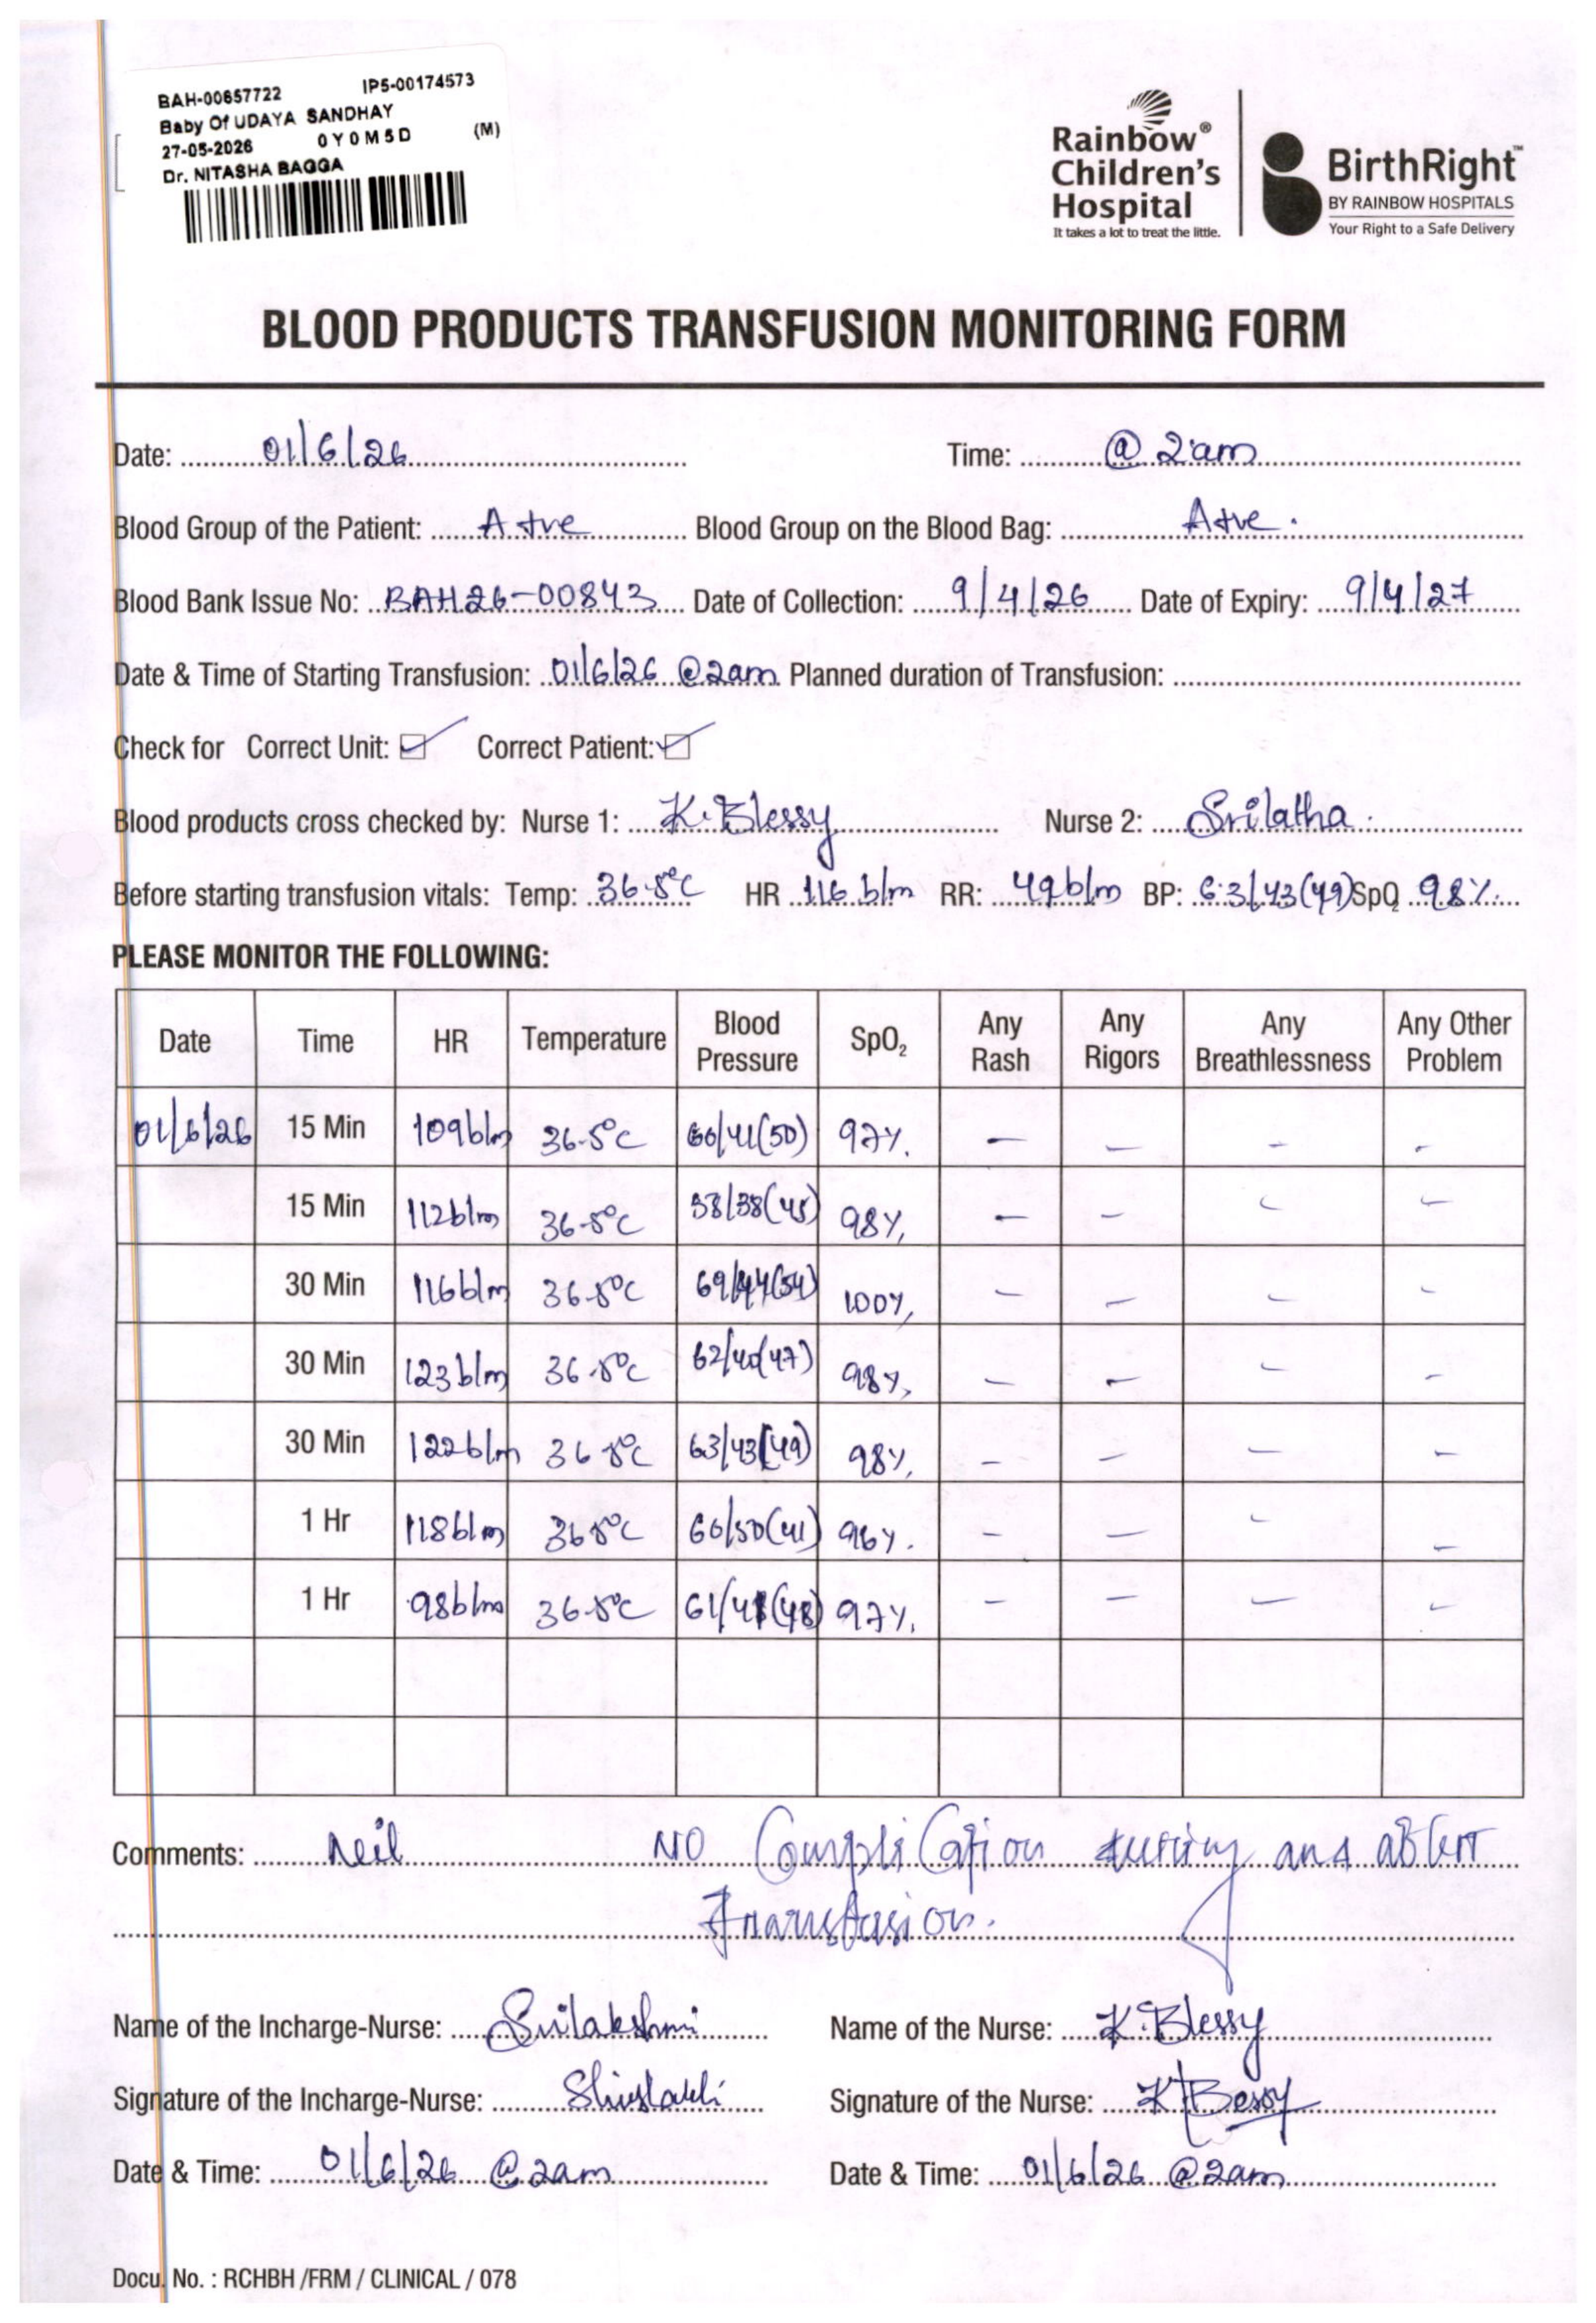 BAH-00657722 IP5-00174573
Baby Of UDAYA SANDHAY
27-05-2026 0Y0M5D (M)
Dr. NITASHA BAGGA
Rainbow® Children's Hospital
It takes a lot to treat the little.
BirthRight™
BY RAINBOW HOSPITALS
Your Right to a Safe Delivery
BLOOD PRODUCTS TRANSFUSION MONITORING FORM
Date: 01/6/26 Time: @ 2am
Blood Group of the Patient: A+ve Blood Group on the Blood Bag: A+ve.
Blood Bank Issue No: BAH26-00843 Date of Collection: 9/4/26 Date of Expiry: 9/4/27
Date & Time of Starting Transfusion: 01/6/26 @2am Planned duration of Transfusion:
Check for Correct Unit: ☑ Correct Patient: ☑
Blood products cross checked by: Nurse 1: K.Blessy Nurse 2: Srilatha.
Before starting transfusion vitals: Temp: 36.5°C HR 116 b/m RR: 49b/m BP: 63/43(49) SpO2 98%
PLEASE MONITOR THE FOLLOWING:
Date Time HR Temperature Blood Pressure SpO2 Any Rash Any Rigors Any Breathlessness Any Other Problem
01/6/26 15 Min 109b/m 36.5°C 60/41(50) 97% - - - -
15 Min 112b/m 36.5°C 58/38(45) 98% - - - -
30 Min 116b/m 36.5°C 69/44(54) 100% - - - -
30 Min 123b/m 36.5°C 62/40(47) 98% - - - -
30 Min 122b/m 36.5°C 63/43(49) 98% - - - -
1 Hr 118b/m 36.5°C 60/50(41) 96% - - - -
1 Hr 98b/m 36.5°C 61/41(48) 97% - - - -
Comments: Neil NO Complication during and
Transfusion.
Name of the Incharge-Nurse: Srilakshmi Name of the Nurse: K.Blessy
Signature of the Incharge-Nurse: Signature of the Nurse:
Date & Time: 01/6/26 @2am Date & Time: 01/6/26 @2am
Docu. No. : RCHBH /FRM / CLINICAL / 078